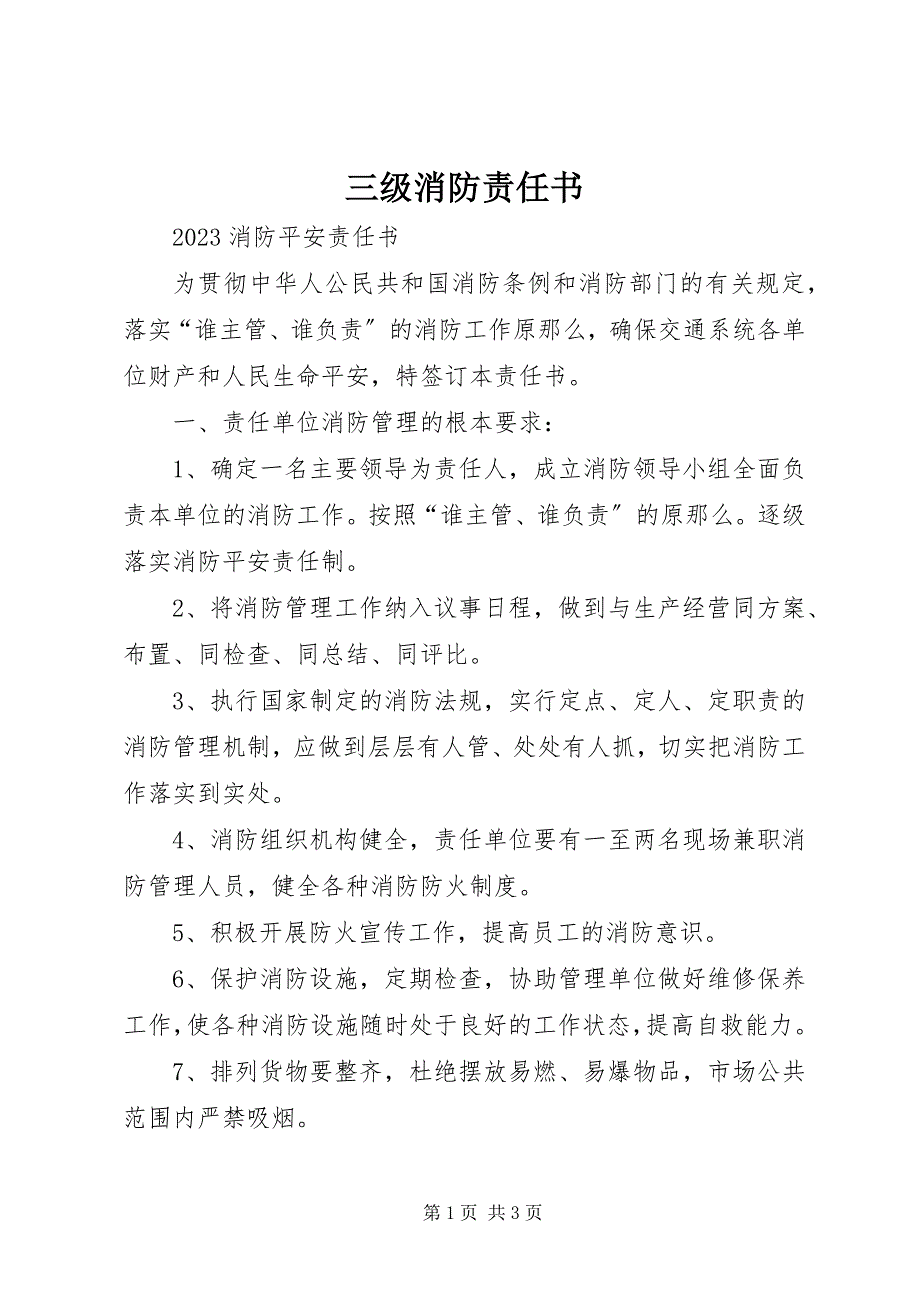 三级消防责任书
2023 消防平安责任书
为贯彻中华人公民共和国消防条例和消防部门的有关规定，
落实“谁主管、谁负责〞的消防工作原那么，确保交通系统各单
位财产和人民生命平安，特签订本责任书。
一、责任单位消防管理的根本要求：
1、确定一名主要领导为责任人，成立消防领导小组全面负
责本单位的消防工作。按照“谁主管、谁负责〞的原那么。逐级
落实消防平安责任制。
2、将消防管理工作纳入议事日程，做到与生产经营同方案、
布置、同检查、同总结、同评比。
3、执行国家制定的消防法规，实行定点、定人、定职责的
消防管理机制，应做到层层有人管、处处有人抓，切实把消防工
作落实到实处。
4、消防组织机构健全，责任单位要有一至两名现场兼职消
防管理人员，健全各种消防防火制度。
5、积极开展防火宣传工作，提高员工的消防意识。
6、保护消防设施，定期检查，协助管理单位做好维修保养
工作，使各种消防设施随时处于良好的工作状态，提高自救能力。
7、排列货物要整齐，杜绝摆放易燃、易爆物品，市场公共
范围内严禁吸烟。
第 1 页 共 3 页